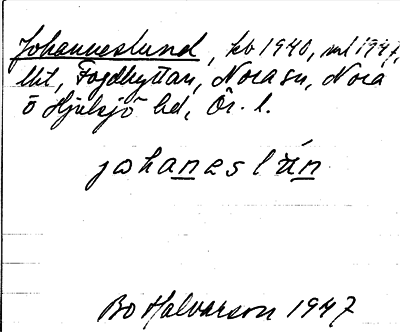 Johanneslund, kb 1940, ml 1947,
lht, Fogdhyttan, Nora sn, Nora
o Hjulsjö bd, Ör. l.
johaneslún
Bo Halvarson 1947